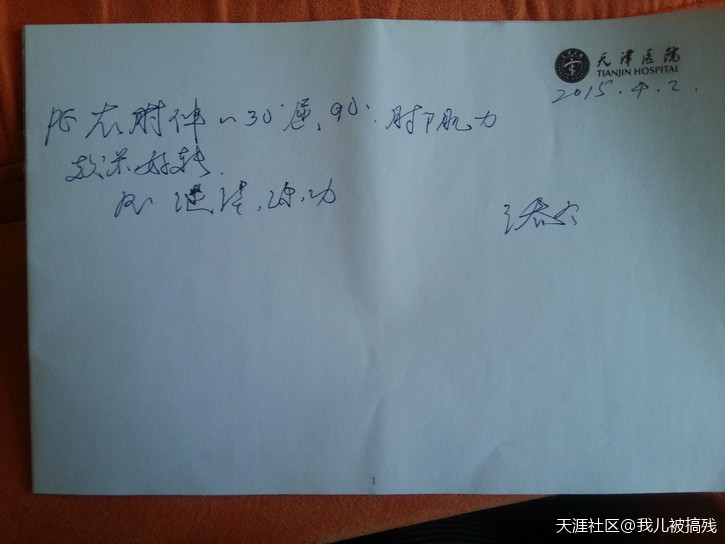 天津医院
TIANJIN HOSPITAL
2015.4.2.
PE 右肘伸~30°屈90°.肘下肌力
较前好转.
练功
1
天涯社区@我儿被搞残